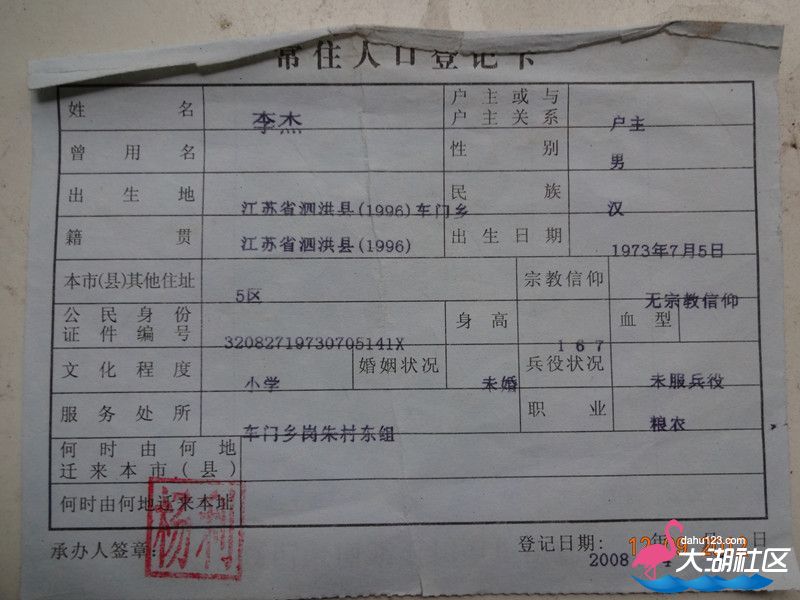 常住人口登记卡
姓名 李杰 户主或与户主关系 户主
曾用名 性别 男
出生地 江苏省泗洪县(1996)车门乡 民族 汉
籍贯 江苏省泗洪县(1996) 出生日期 1973年7月5日
本市(县)其他住址 5区 宗教信仰 无宗教信仰
公民身份证件编号 32082719730705141X 身高 167 血型
文化程度 小学 婚姻状况 未婚 兵役状况 未服兵役
服务处所 车门乡岗朱村东组 职业 粮农
何时由何地迁来本市(县)
何时由何地迁来本址
承办人签章: 杨利 登记日期: 年 日
2008
dahu123.com
大湖社区